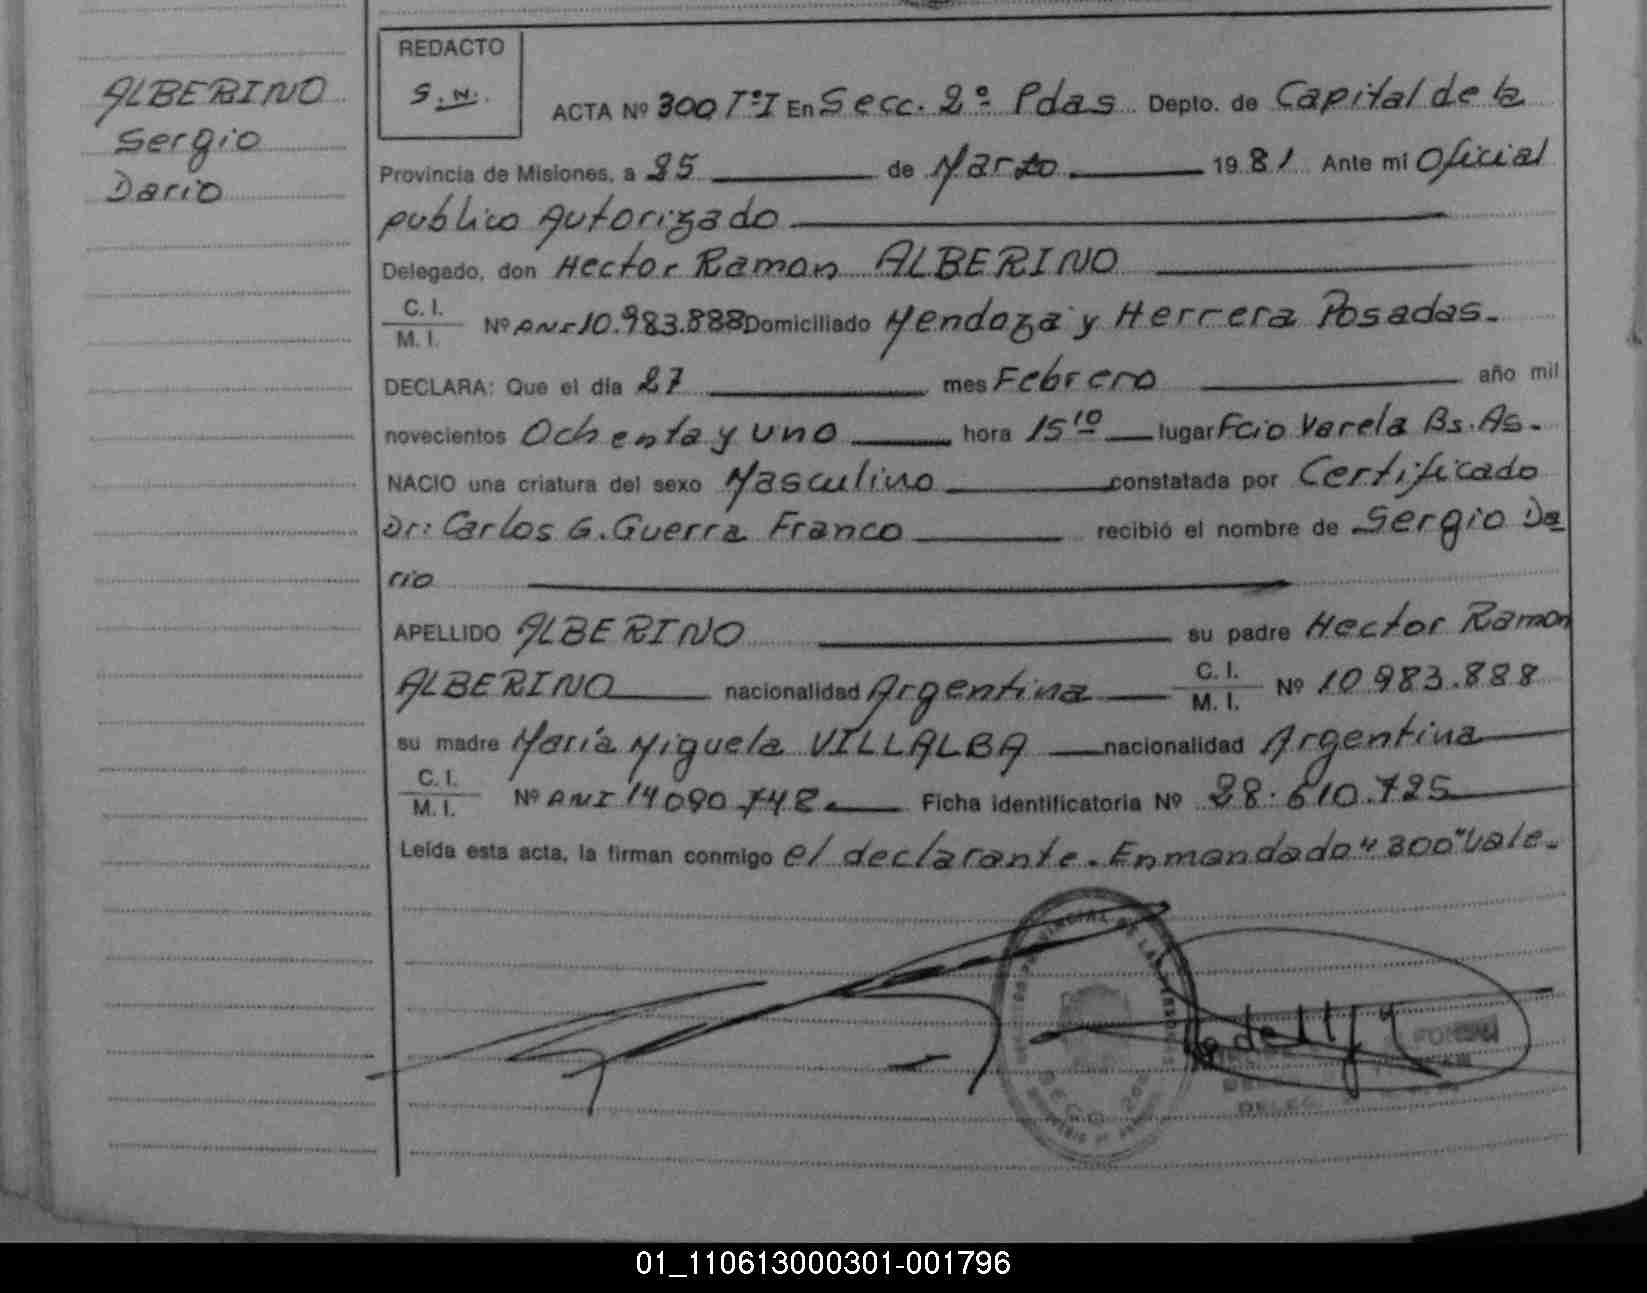 ALBERINO
Sergio
Dario
REDACTO
S.N.
ACTA Nº 300 TºI En Secc. 2º Pdas Depto. de Capital de la
Provincia de Misiones, a 25 de Marzo 1981 Ante mi Oficial
publico Autorizado
Delegado, don Hector Ramon ALBERINO
C. I.
M. I.
Nº 10.983.888 Domiciliado Mendoza y Herrera Posadas.
DECLARA: Que el día 27 mes Febrero año mil
novecientos Ochenta y uno hora 15 10 lugar Fcio Varela Bs. As.
NACIO una criatura del sexo Masculino constatada por Certificado
Dr: Carlos G. Guerra Franco recibió el nombre de Sergio Da
rio
APELLIDO ALBERINO su padre Hector Ramon
ALBERINO nacionalidad Argentina C. I.
M. I. Nº 10.983.888
su madre María Miguela VILLALBA nacionalidad Argentina
C. I.
M. I.
Nº ANI 14090.742 Ficha identificatoria Nº 28.610.725
Leída esta acta, la firman conmigo el declarante. Enmandado "300" Vale.
01_110613000301-001796